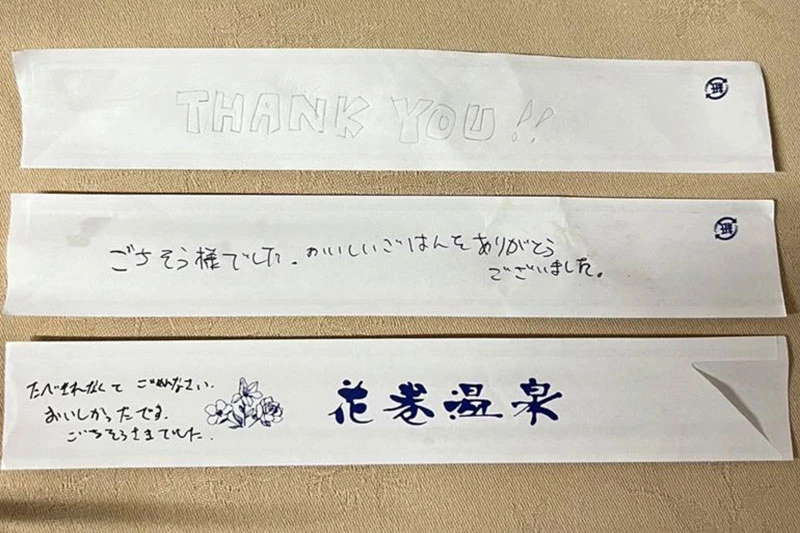 THANK YOU!!
紙
ごちそう様でした。おいしいごはんをありがとう
ございました。
紙
たべきれなくて ごめんなさい.
おいしかったです.
ごちそうさまでした.
花巻温泉